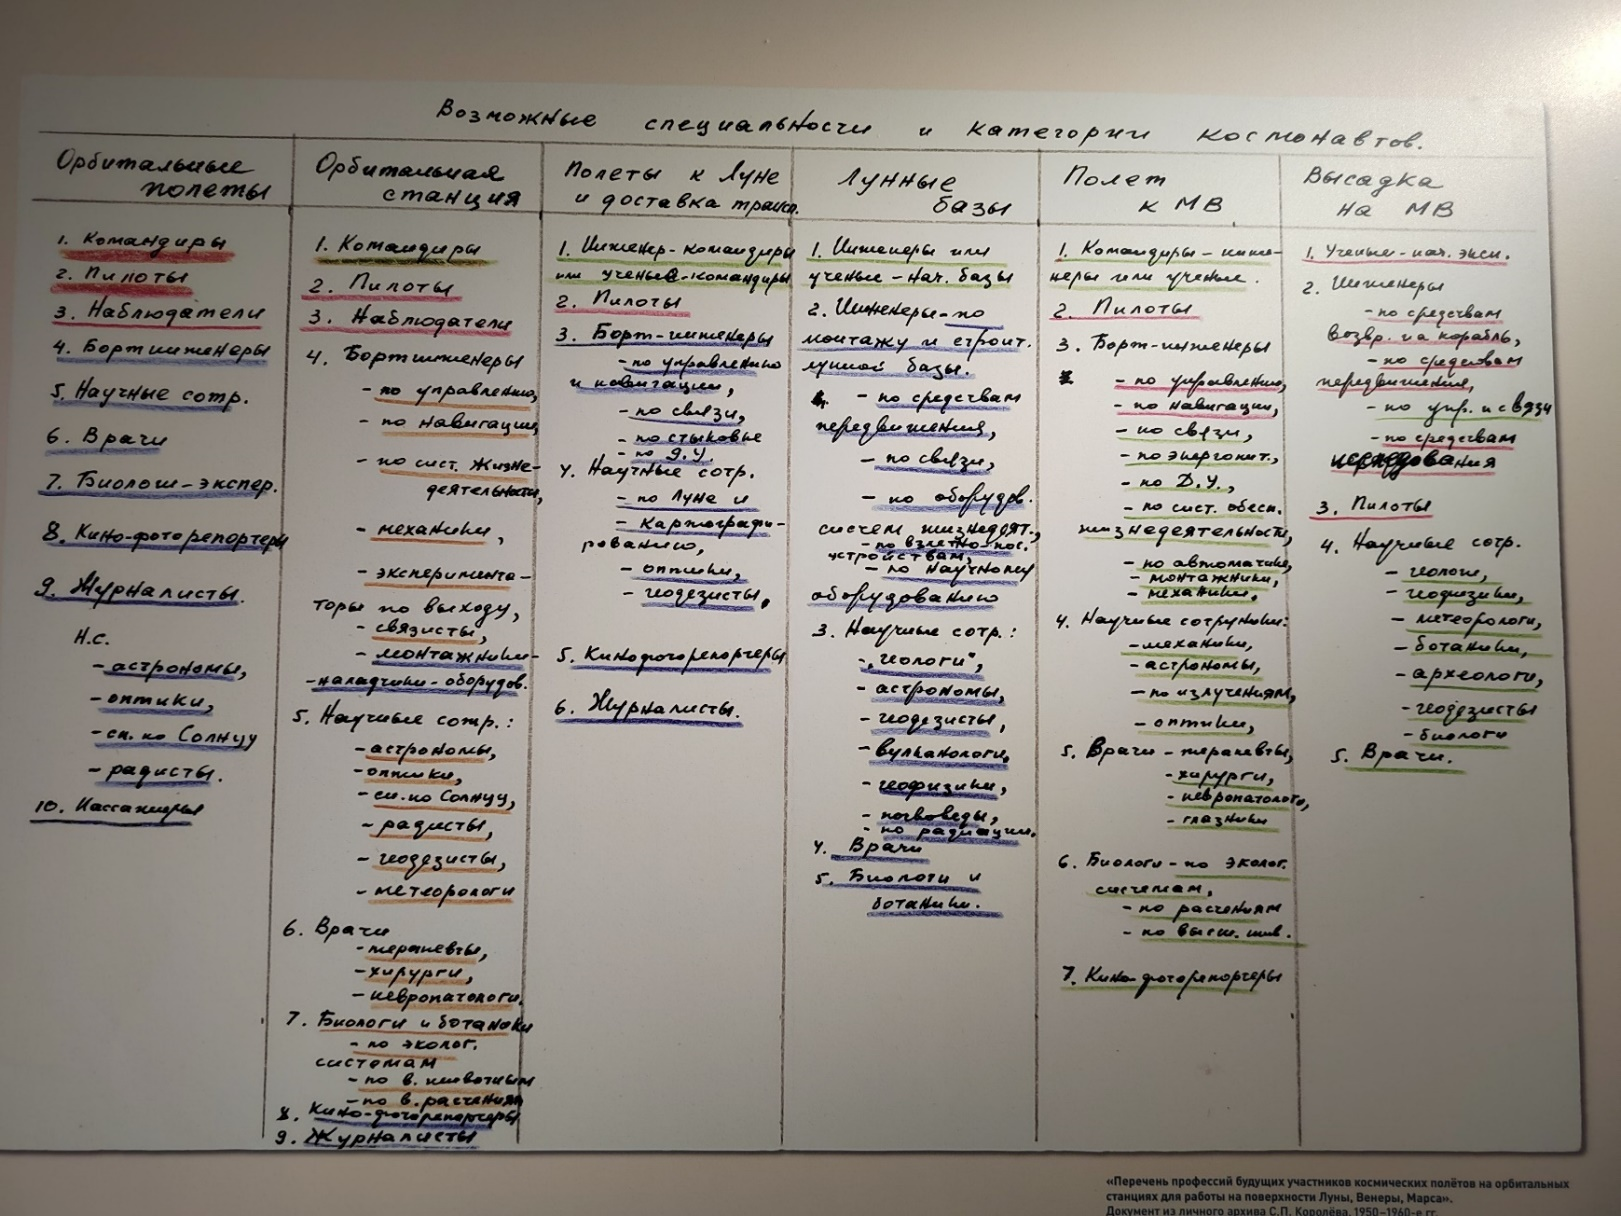 Возможные специальности и категории космонавтов.
Орбитальные
полеты
1. Командиры
2. Пилоты
3. Наблюдатели
4. Бортинженеры
5. Научные сотр.
6. Врачи
7. Биологи-экспер.
8. Кино-фоторепортеры
9. Журналисты.
Н.с.
- астрономы,
- оптики,
- сп. по Солнцу
- радисты.
10. Пассажиры
Орбитальная
станция
1. Командиры
2. Пилоты
3. Наблюдатели
4. Бортинженеры
- по управлению,
- по навигации,
- по сист. жизне-
деятельности,
- механики,
- эксперимента-
торы по выходу,
- связисты,
- монтажники-
-наладчики-оборудов.
5. Научные сотр.:
- астрономы,
- оптики,
- сп. по Солнцу,
- радисты,
- геодезисты,
- метеорологи
6. Врачи
- терапевты,
- хирурги,
- невропатологи.
7. Биологи и ботаники
- по эколог.
системам
- по в. животным
- по в. растениям
8. Кино-фоторепортеры
9. Журналисты
Полеты к Луне
и доставка трансп.
1. Инженер-командиры
или ученые-командиры
2. Пилоты
3. Борт-инженеры
- по управлению
и навигации,
- по связи,
- по стыковке
- по Д.У.
4. Научные сотр.
- по Луне и
- картографи-
рованию,
- оптики,
- геодезисты,
5. Кинофоторепортеры
6. Журналисты.
Лунные
базы
1. Инженеры или
ученые - нач. базы
2. Инженеры-по
монтажу и строит.
лунной базы.
- по средствам
передвижения,
- по связи,
- по оборудов.
систем жизнедеят.,
- по взлетно-пос.
устройствам,
- по научному
оборудованию
3. Научные сотр.:
- "геологи",
- астрономы,
- геодезисты,
- вулканологи,
- геофизики,
- почвоведы,
- по радиации.
4. Врачи
5. Биологи и
ботаники.
Полет
к МВ
1. Командиры - инже-
неры или ученые.
2. Пилоты
3. Борт-инженеры
- по управлению,
- по навигации,
- по связи,
- по энергопит.,
- по Д.У.,
- по сист. обесп.
жизнедеятельности,
- по автоматике,
- монтажники,
- механики.
4. Научные сотрудники:
- механики,
- астрономы,
- по излучениям,
- оптики,
5. Врачи - терапевты,
- хирурги,
- невропатологи,
- глазники
6. Биологи - по эколог.
системам,
- по растениям
- по высш. жив.
7. Кино-фоторепортеры
Высадка
на МВ
1. Ученые-нач. эксп.
2. Инженеры
- по средствам
возвр. на корабль,
- по средствам
передвижения,
- по упр. и связи
- по средствам
исследования
3. Пилоты
4. Научные сотр.
- геологи,
- геофизики,
- метеорологи,
- ботаники,
- археологи,
- геодезисты
- биологи
5. Врачи.
«Перечень профессий будущих участников космических полётов на орбитальных
станциях для работы на поверхности Луны, Венеры, Марса».
Документ из личного архива С.П. Королёва. 1950–1960-е гг.